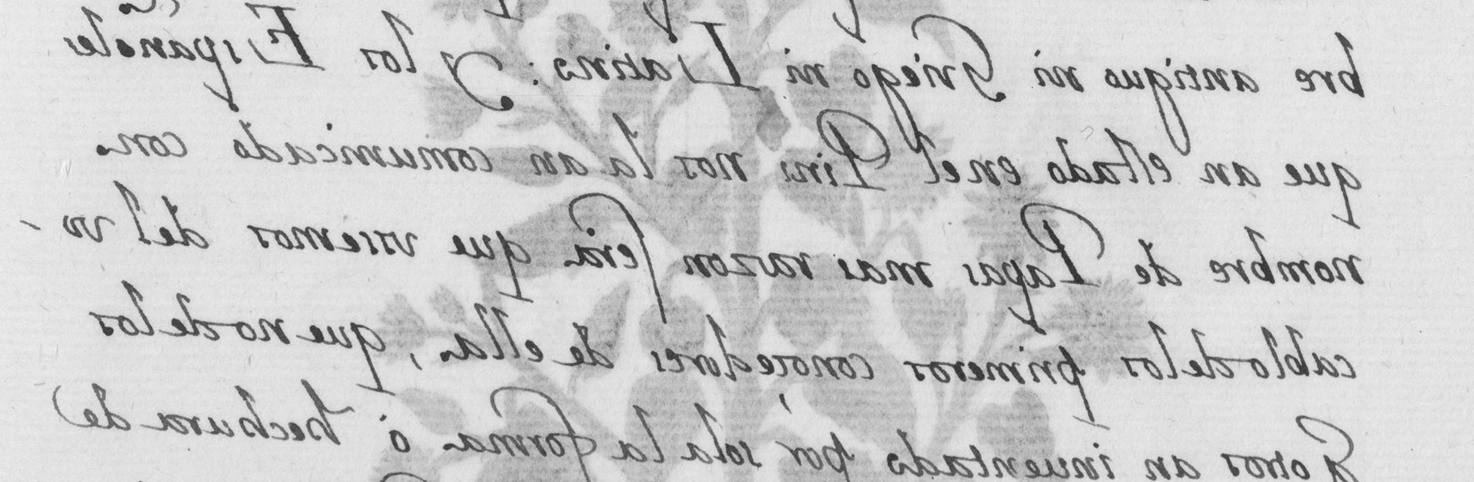 bre antiguo ni Griego ni Latino: y los Españoles
que an estado en el Piru nos la an comunicado con
nombre de Papas mas razon será que usemos del vo-
cablo de los primeros conocedores de ella, que no de los
q otros an inuentado por sola la forma ó hechura de